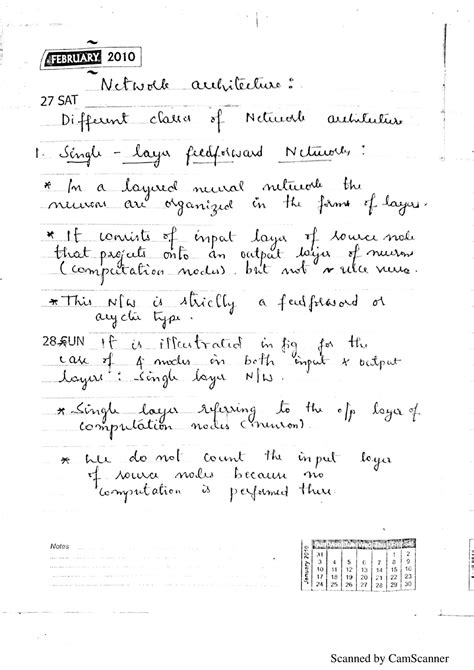 FEBRUARY 2010
Network architecture :
27 SAT
Different classes of Network architecture
1. Single - layer feedforward Networks :
* In a layered neural network the
neurons are organized in the forms of layers.
* It consists of input layer of source node
that projects onto an output layer of neurons
(computation nodes), but not vice versa.
* This N/W is strictly a feedforward or
acyclic type.
28 SUN It is illustrated in fig for the
case of 4 nodes in both input & output
layers : Single layer N/W.
* Single layer referring to the o/p layer of
computation nodes (neuron).
* We do not count the input layer
of source nodes because no
computation is performed there
Notes
January 2010
31 1 2
3 4 5 6 7 8 9
10 11 12 13 14 15 16
17 18 19 20 21 22 23
24 25 26 27 28 29 30
Scanned by CamScanner